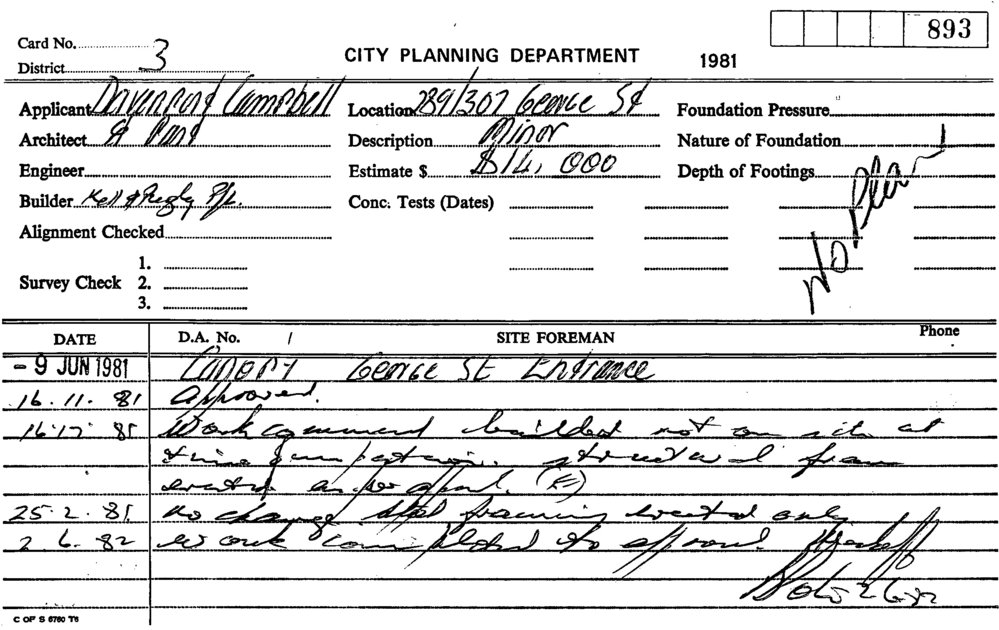 893
Card No. 3
CITY PLANNING DEPARTMENT 1981
District
Applicant Davenport Campbell Location 289/307 George St Foundation Pressure
Architect & Part Description Minor Nature of Foundation
Engineer Estimate $ $14,000 Depth of Footings
Builder Kell & Rigby P/L. Conc. Tests (Dates)
No Plan
Alignment Checked
1.
Survey Check 2.
3.
DATE D.A. No. / SITE FOREMAN Phone
- 9 JUN 1981 Canopy George St Entrance
16.11. 81 Approved.
81 Work commenced not on site at
time inspection. structural frame
erected as per
25.2. 81. no change steel framing erected only
2.6.82 work completed to approval.
2 6 82
C OF S 6760 T6